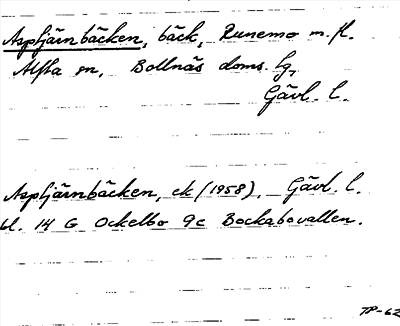 Asptjärnbäcken, bäck, Runemo m.fl.
Alfta sn, Bollnäs doms. hg,
Gävl. l.
Asptjärnbäcken, ek (1958), Gävl. l.
bl. 14 G Ockelbo 9c Bockabovallen.
TP-62